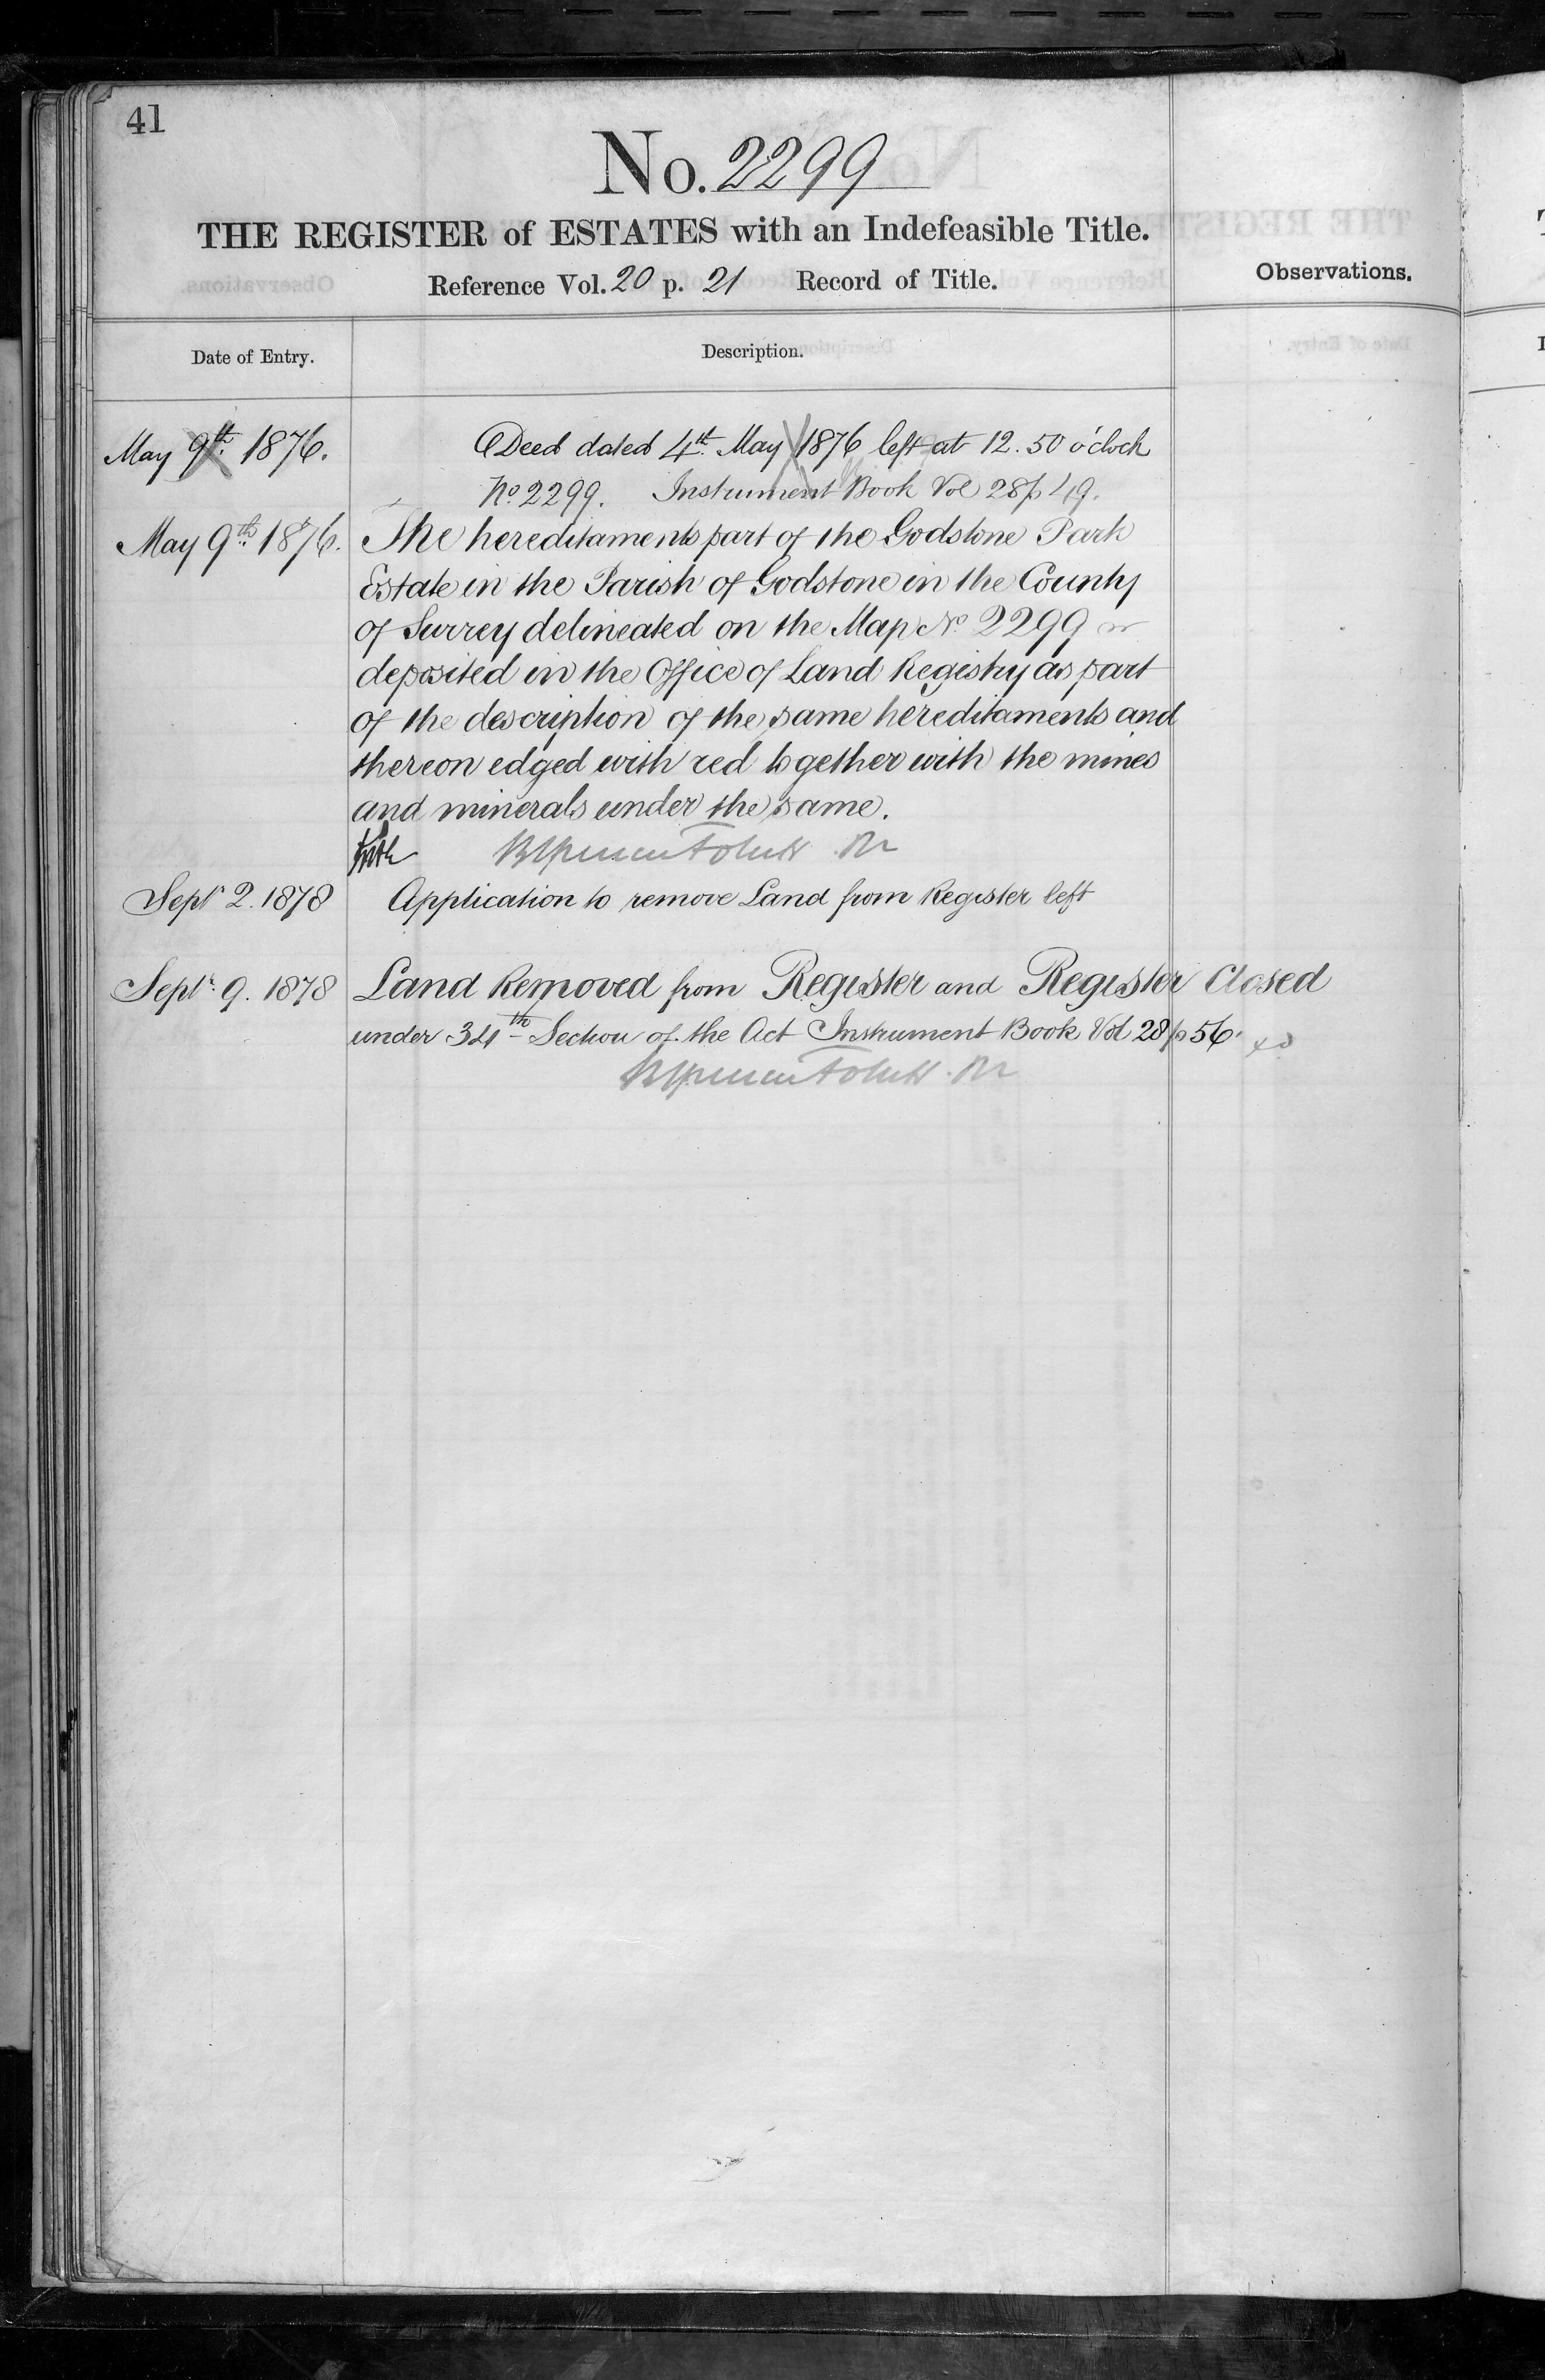 41
No. 2299
THE REGISTER of ESTATES with an Indefeasible Title.
Reference Vol. 20 p. 21 Record of Title.
Observations.
Date of Entry.
Description.
May 9th. 1876. Deed dated 4th. May 1876 left at 12.50 o'clock
No. 2299. Instrument Book Vol 28 p 49.
May 9th. 1876. The hereditaments part of the Godstone Park
Estate in the Parish of Godstone in the County
of Surrey delineated on the Map No. 2299
deposited in the Office of Land Registry as part
of the description of the same hereditaments and
thereon edged with red together with the mines
and minerals under the same.
Sept. 2. 1878 Application to remove Land from Register left
Septr. 9. 1878 Land Removed from Register and Register Closed
under 34th Section of the Act Instrument Book Vol 28 p 56.